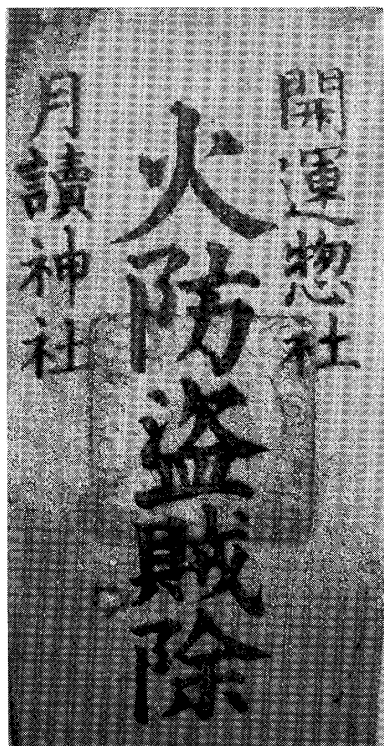 開運惣社
火防盗賊除
月讀神社